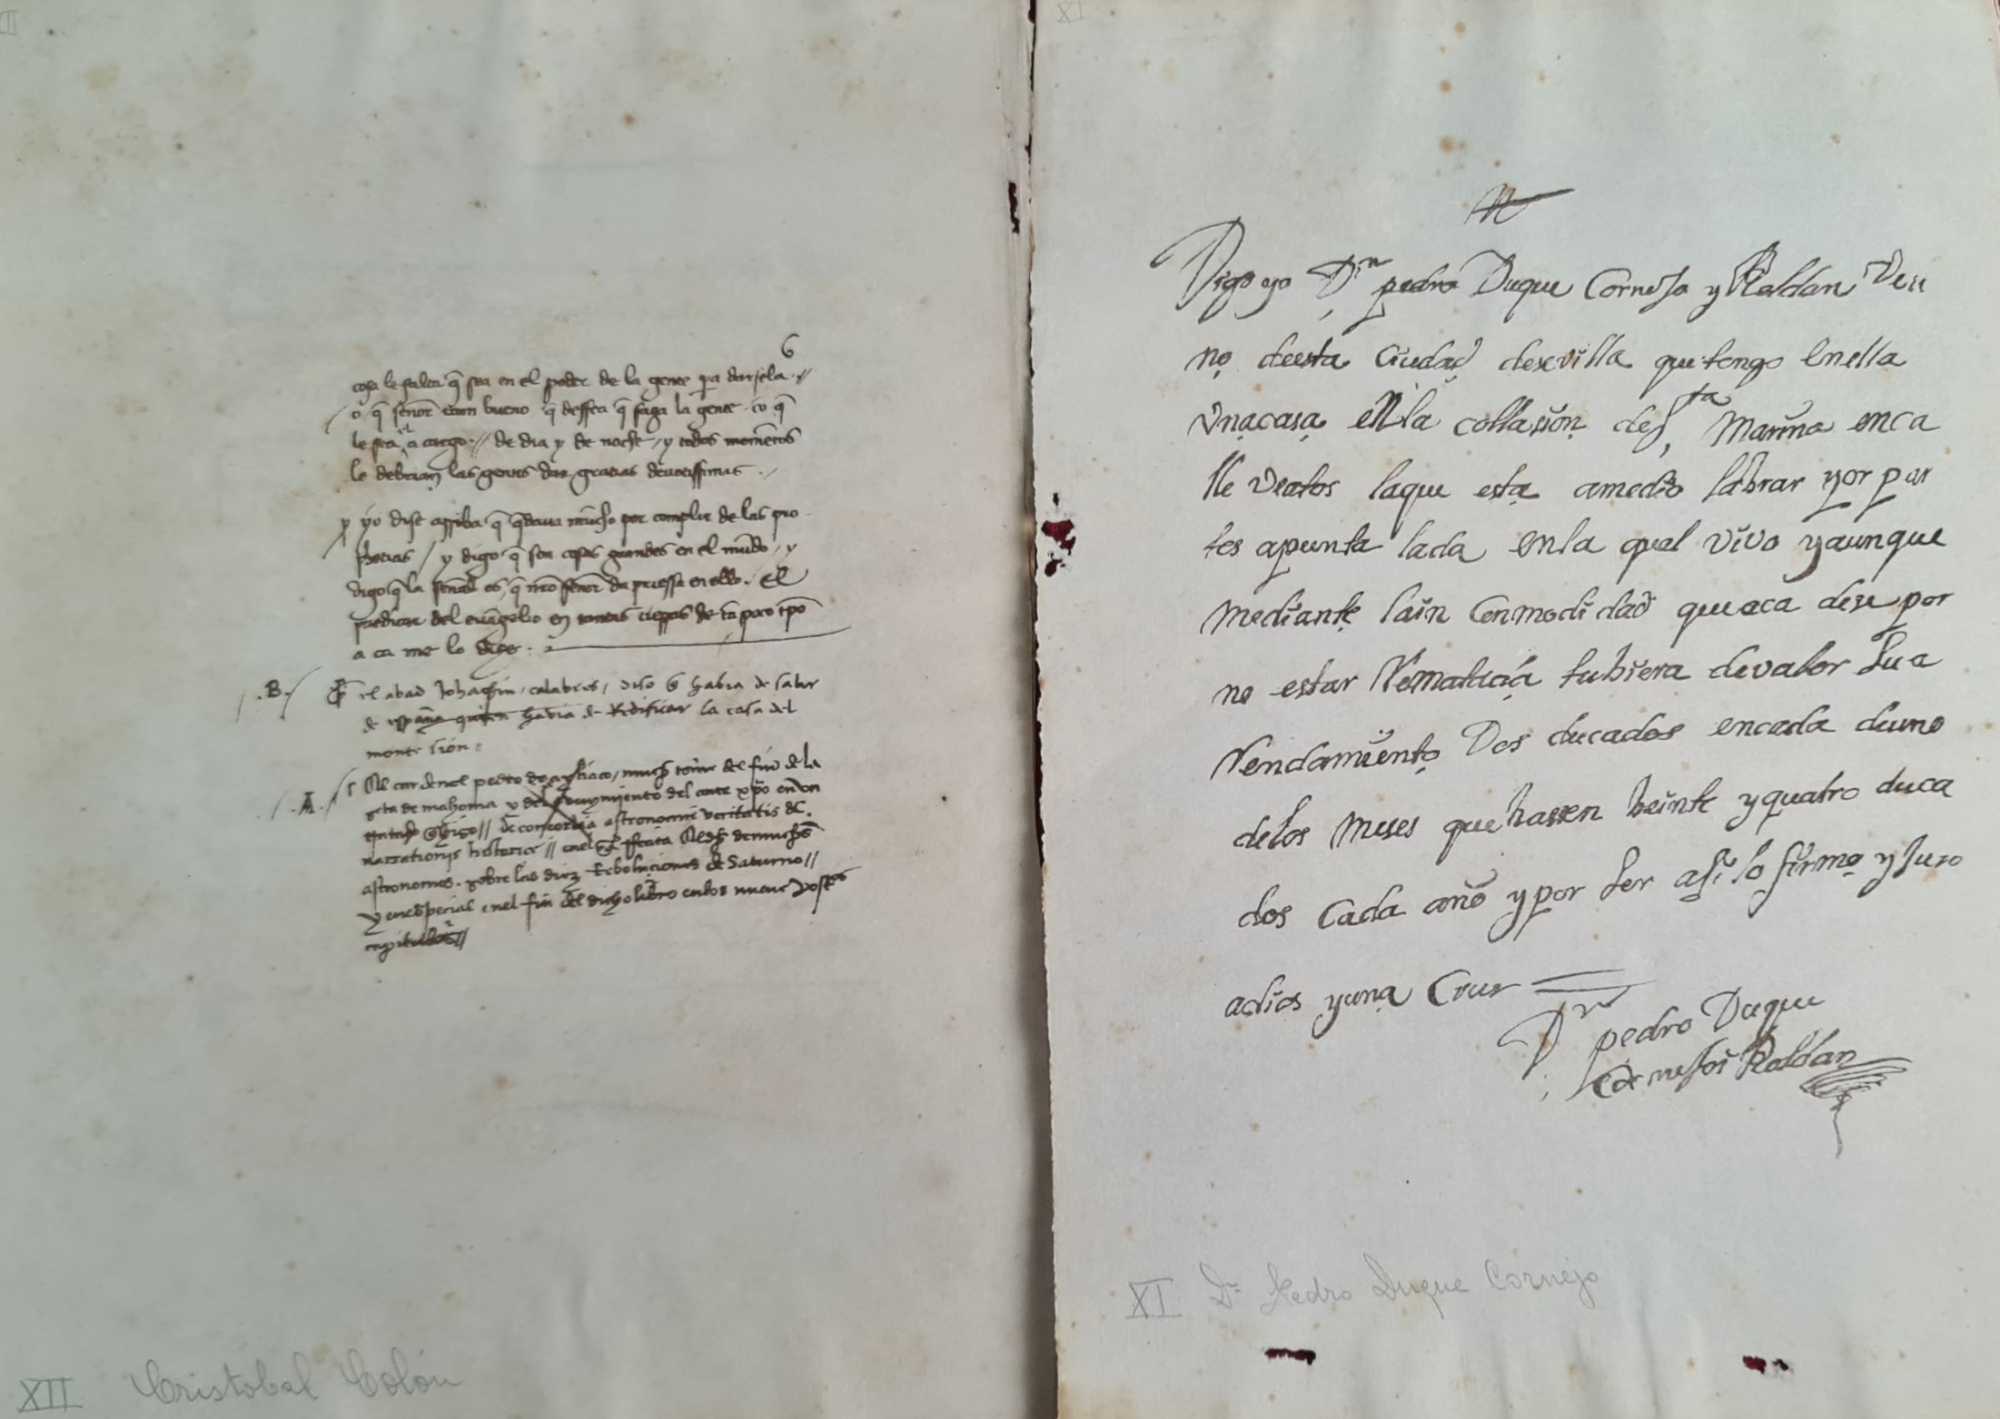 XII
6
cosa le falta q̃ sea en el poder de la gente pa darsela //
o q̃ señor tam bueno q̃ dessea q̃ faga la gente co q̃
le sea a cargo // de dia y de noche y todos momẽtos
le debrian las gentes dar gracias deuotissimas //
yo dise arriba q̃ q̃daua mucho por complir de las pro
fecias / y digo q̃ son cosas grandes en el mũdo / y
digo q̃ la señal es q̃ nro señor da priessa en ello / El
predicar del euãgelio en tantas tierras de tã poco tpõ
a ca me lo dize
.B. el abad Johachin, calabres, diso q̃ habia de salir
de españa quien havia de redificar la casa del
monte sion
.A. El cardenal pedro de aylliaco, mucho escriue del fin de la
seta de mahoma y del avenymiento del ante xpõ en un
astronomie veritatis &
narrationis historice //
astronomos sobre las diez Reboluciones de Saturno //
y en especial en el fin del dicho libro en los nueve
capitulos //
XII Cristobal Colón
XI
Digo yo Dn pedro Duque Cornejo y Roldan Veci
no deesta Ciudad desevilla que tengo Enella
Vnacasa en la collasion de Sta Marina enca
lle Veatos laque esta amedio labrar y por par
tes apunta lada enla qual vivo y aunque
Mediante lain Conmodidad que aca dese por
no estar Rematada tubiera devalor su a
Rendamiento Dos ducados encada duno
delos Meses que hasen beinte y quatro duca
dos Cada año y por ser asi lo firmo y Juro
adios yuna Cruz
Dn pedro Duque
Cornejo i Roldan
XI Dn Pedro Duque Cornejo